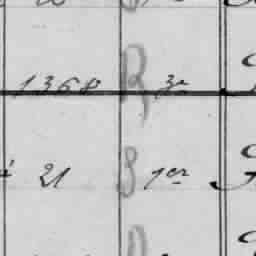 1368 R 3e
21 3 1er